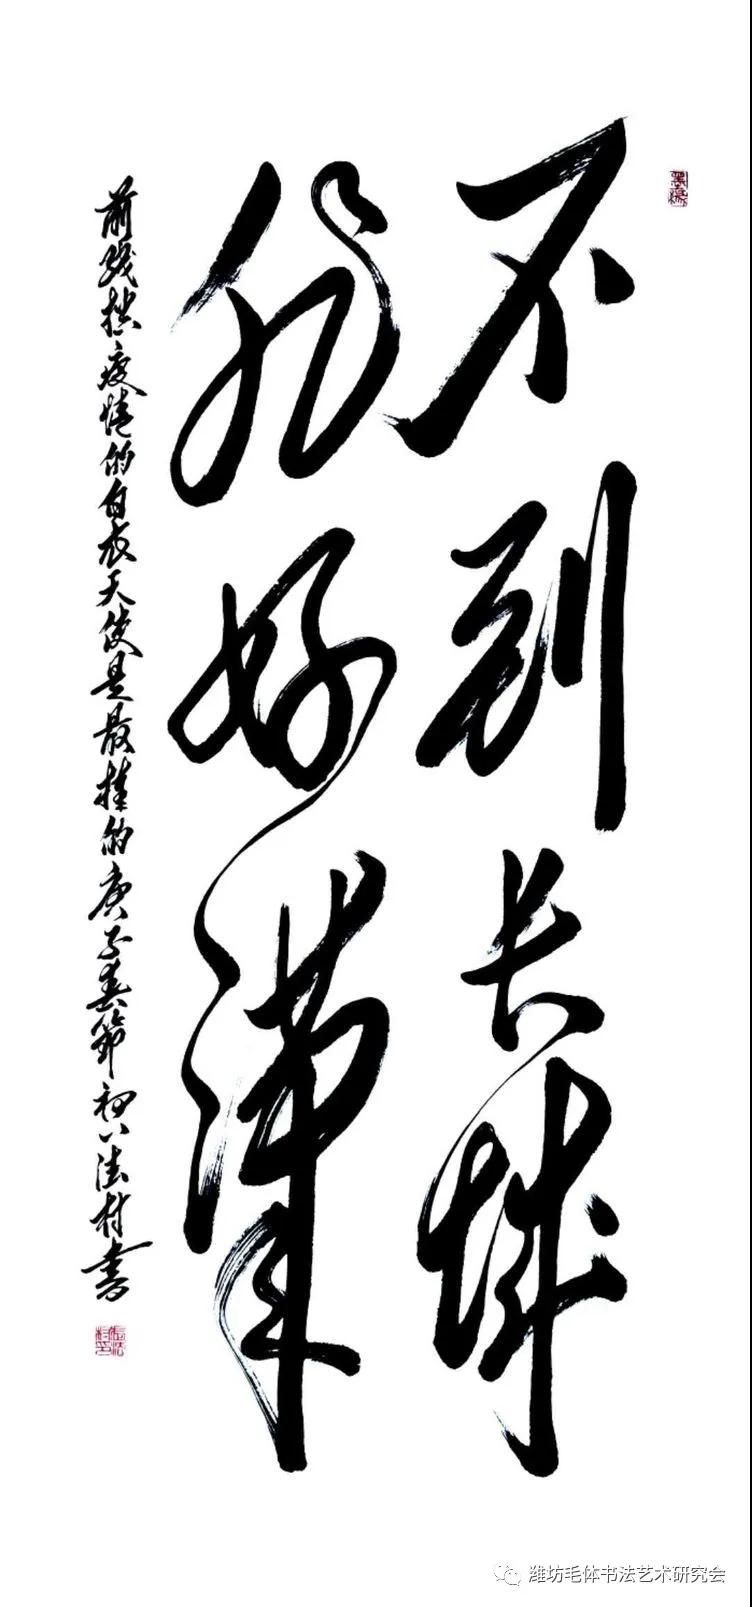 不到长城
非好漢
前线抗疫情的白衣天使是最棒的庚子春節初八法村書
潍坊毛体书法艺术研究会